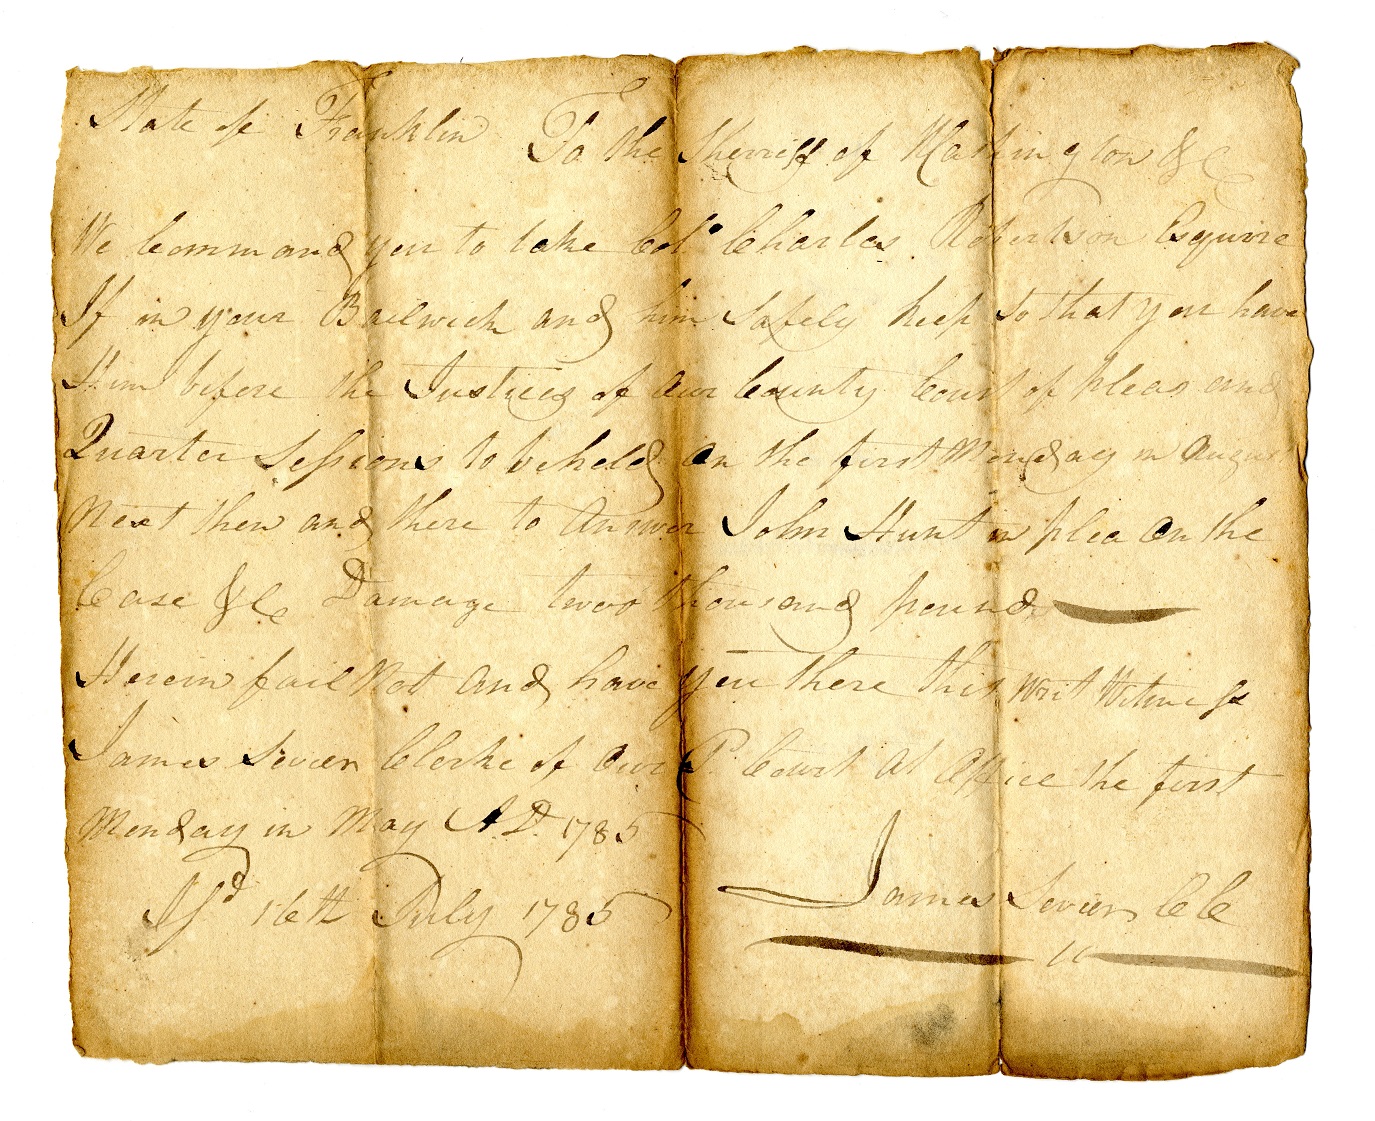 State of Franklin To the Sherriff of Washington &C
We Command you to take Col.º Charles Robertson Esquire
If in your Bailwick and him Safely keep So that you have
Him before the Justices of our County Court of pleas and
Quarter Sessions to be held on the first Monday in August
Next then and there to Answer John Hunt in plea On the
Case &C Damage two thousand pound
Herein fail Not And have you there this writ Witness
James Sevier Clerke of Our Court At Office the first
Monday in May A.D. 1785
Isd 16th July 1785
James Sevier CC